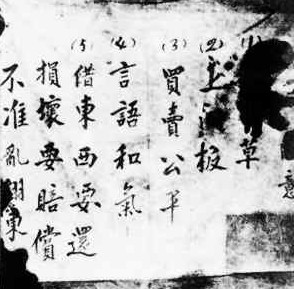 (1) 草
(2) 上 板
(3) 買賣公平
(4) 言語和氣
(5) 借東西要還
損壞要賠償
不准亂翻東
意